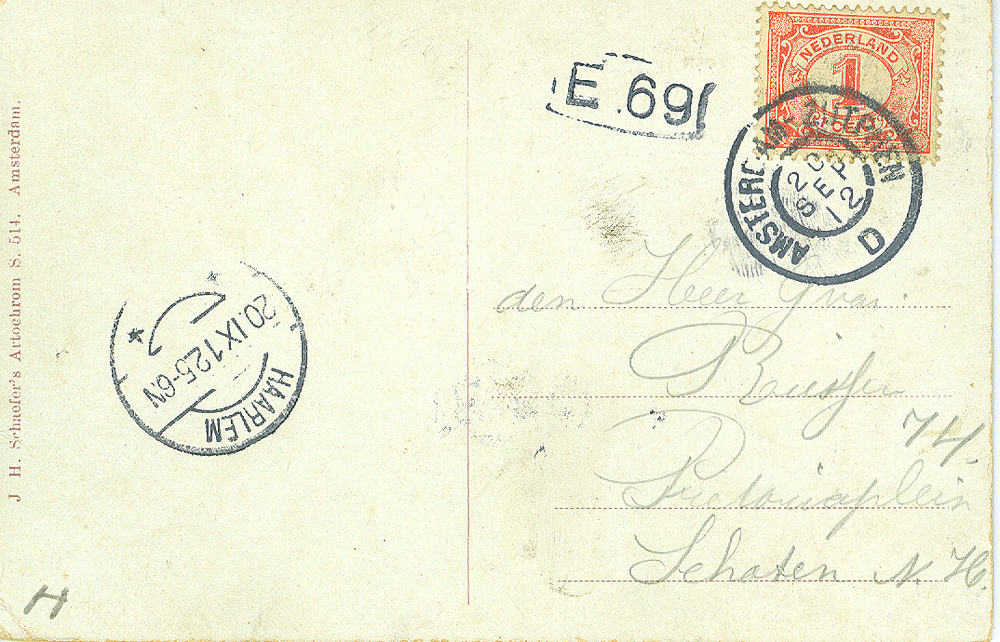 J. H. Schaefer's Artochrom S. 514. Amsterdam.
E 69
NEDERLAND
1
AMSTERDAM-ZUTPHEN
20
SEP
12
D
20.IX.12 5-6N
HAARLEM
den Heer
74.
Pretoriaplein
Schoten N. H.
H